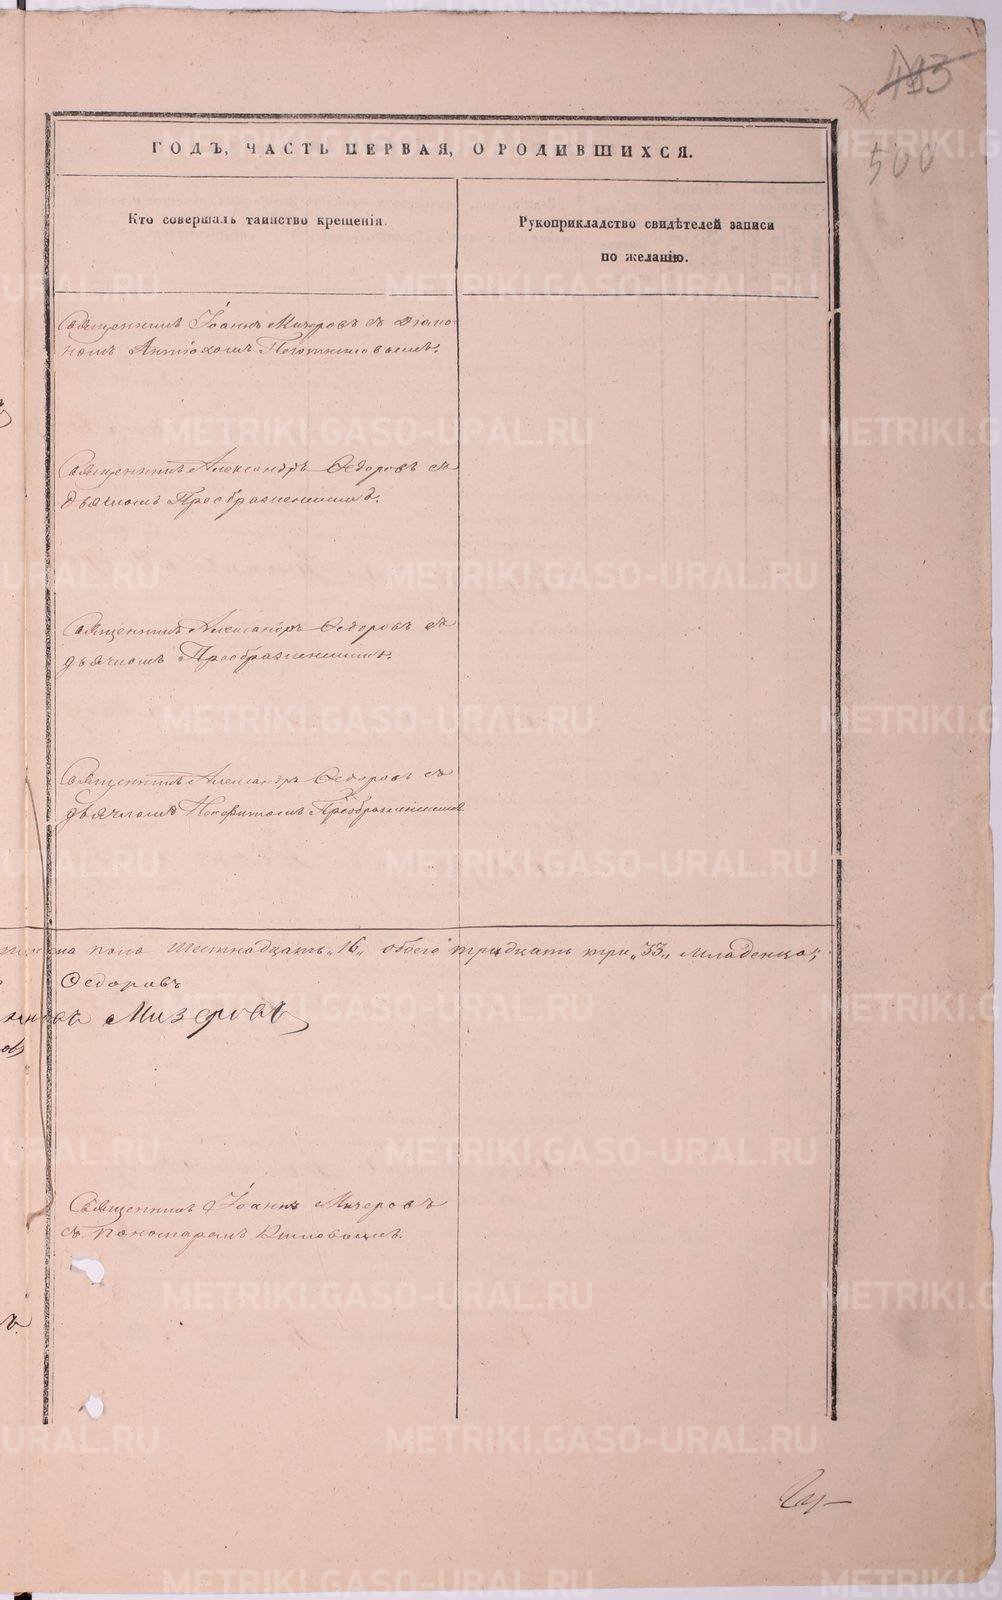 413
500
ГОДЪ, ЧАСТЬ ПЕРВАЯ, О РОДИВШИХСЯ.
Кто совершалъ таинство крещенія.
Рукоприкладство свидѣтелей записи
по желанію.
Священникъ Іоаннъ Мизеровъ съ діако-
номъ Антіохомъ
Священникъ Александръ Ѳедоровъ съ
дьячкомъ Преображенскимъ.
Священникъ Александръ Ѳедоровъ съ
дьячкомъ Преображенскимъ.
Священникъ Александръ Ѳедоровъ съ
дьячкомъ Неофитомъ Преображенскимъ
пола шестнадцать „16„ обоего тридцать три „33„ младенца;
Ѳедоровъ
Мизеровъ
Священникъ Іоаннъ Мизеровъ
съ пономаремъ
METRIKI.GASO-URAL.RU